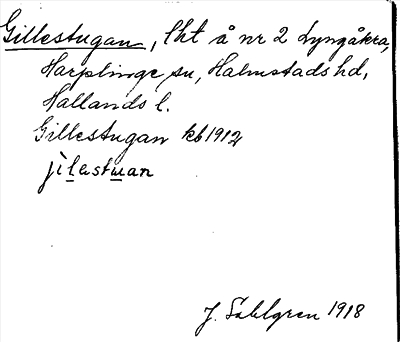 Gillestugan, lht å nr 2 Lyngåkra,
Harplinge sn, Halmstads hd,
Hallands l.
Gillestugan kb 1912
jìlestuan
J. Sahlgren 1918